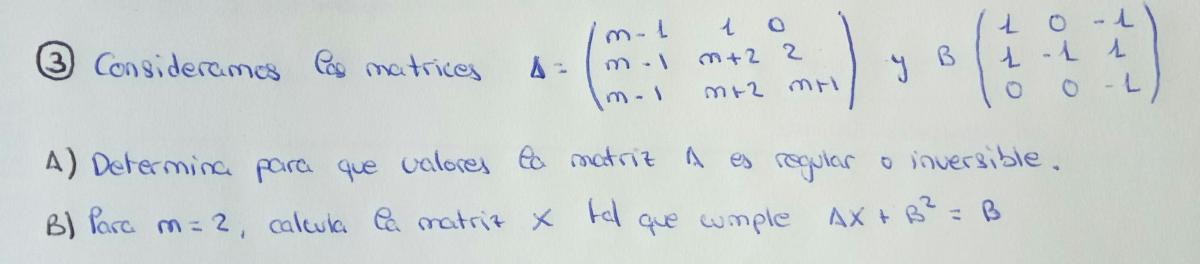 ③ Consideramos las matrices A = (m-1 1 0
m-1 m+2 2
m-1 m+2 m+1) y B (1 0 -1
1 -1 1
0 0 -1)
A) Determina para que valores la matriz A es regular o inversible.
B) Para m=2, calcula la matriz X tal que cumple AX + B² = B